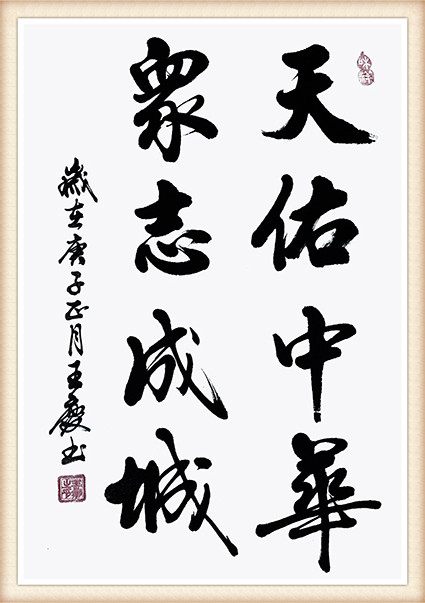 天佑中華
衆志成城
歲在庚子正月王慶书